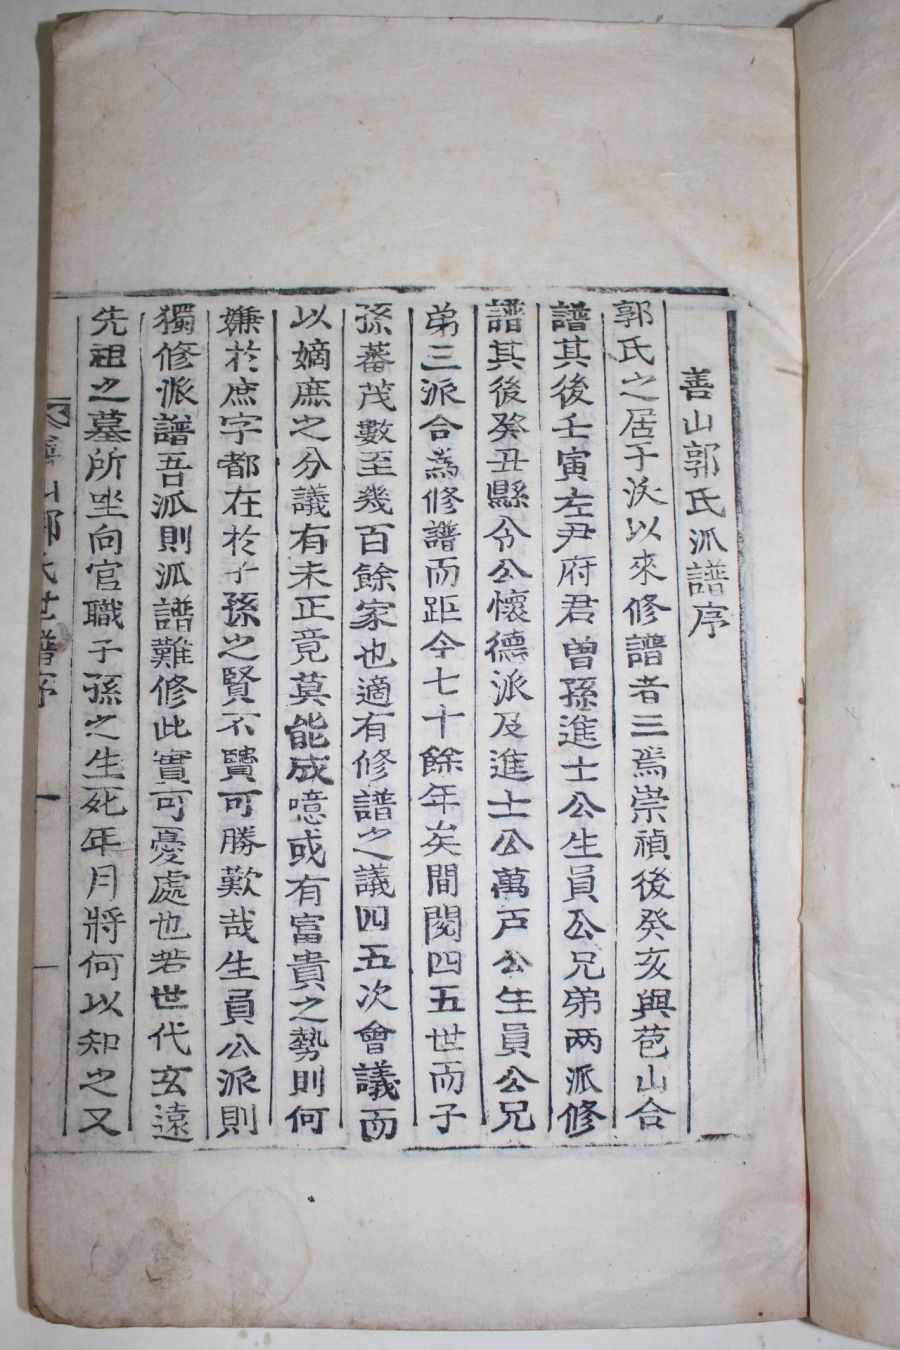 善山郭氏派譜序
郭氏之居于沃以來修譜者三焉崇禎後癸亥與苞山合
譜其後壬寅左尹府君曾孫進士公生員公兄弟两派修
譜其後癸丑縣令公懷德派及進士公萬戶公生員公兄
弟三派合為修譜而距今七十餘年矣間閱四五世而子
孫蕃茂數至幾百餘家也適有修譜之議四五次會議而
以嫡庶之分議有未正竟莫能成噫或有富貴之勢則何
嫌於庶字都在於子孫之賢不贒可勝歎哉生員公派則
獨修派譜吾派則派譜難修此實可憂處也若世代玄遠
先祖之墓所坐向官職子孫之生死年月將何以知之又
善山郭氏世譜序 一